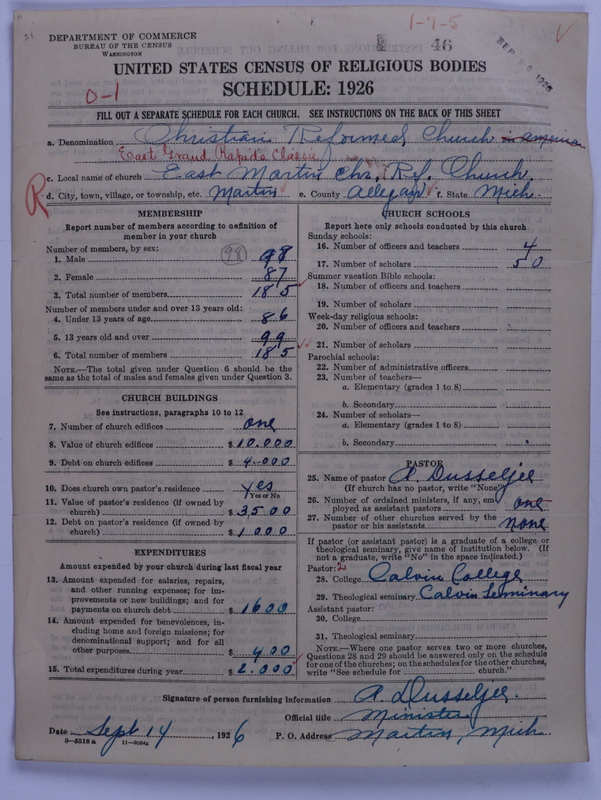 1-7-5
DEPARTMENT OF COMMERCE
BUREAU OF THE CENSUS
WASHINGTON
46
SEP 1926
UNITED STATES CENSUS OF RELIGIOUS BODIES
SCHEDULE: 1926
0-1
FILL OUT A SEPARATE SCHEDULE FOR EACH CHURCH. SEE INSTRUCTIONS ON THE BACK OF THIS SHEET
a. Denomination Christian Reformed Church in America
East Grand Rapids Classis
c. Local name of church East Martin Chr. Ref. Church.
R d. City, town, village, or township, etc. Martin e. County Allegan f. State Mich
MEMBERSHIP
Report number of members according to definition of
member in your church
Number of members, by sex:
1. Male (98) 98
2. Female 87
3. Total number of members 185
Number of members under and over 13 years old:
4. Under 13 years of age 86
5. 13 years old and over 99
6. Total number of members 185
NOTE.—The total given under Question 6 should be the
same as the total of males and females given under Question 3.
CHURCH BUILDINGS
See instructions, paragraphs 10 to 12
7. Number of church edifices one
8. Value of church edifices $10.000
9. Debt on church edifices $4.000
10. Does church own pastor's residence yes
Yes or No
11. Value of pastor's residence (if owned by
church) $3500
12. Debt on pastor's residence (if owned by
church) $1000
EXPENDITURES
Amount expended by your church during last fiscal year
13. Amount expended for salaries, repairs,
and other running expenses; for im-
provements or new buildings; and for
payments on church debt $1600
14. Amount expended for benevolences, in-
cluding home and foreign missions; for
denominational support; and for all
other purposes $400
15. Total expenditures during year $2.000
CHURCH SCHOOLS
Report here only schools conducted by this church
Sunday schools:
16. Number of officers and teachers 4
17. Number of scholars 50
Summer vacation Bible schools:
18. Number of officers and teachers
19. Number of scholars
Week-day religious schools:
20. Number of officers and teachers
21. Number of scholars
Parochial schools:
22. Number of administrative officers
23. Number of teachers—
a. Elementary (grades 1 to 8)
b. Secondary
24. Number of scholars—
a. Elementary (grades 1 to 8)
b. Secondary
PASTOR
25. Name of pastor A. Dusseljee
(If church has no pastor, write "None")
26. Number of ordained ministers, if any, em-
ployed as assistant pastors one
27. Number of other churches served by the
pastor or his assistants none
If pastor (or assistant pastor) is a graduate of a college or
theological seminary, give name of institution below. (If
not a graduate, write "No" in the space indicated.)
Pastor: 2
28. College Calvin College
29. Theological seminary Calvin Seminary
Assistant pastor:
30. College
31. Theological seminary
NOTE.—Where one pastor serves two or more churches,
Questions 28 and 29 should be answered only on the schedule
for one of the churches; on the schedules for the other churches,
write "See schedule for church."
Signature of person furnishing information A. Dusseljee
Official title Minister
Date Sept 14, 1926 P. O. Address Martin, Mich.
8—5518 a 11—9064